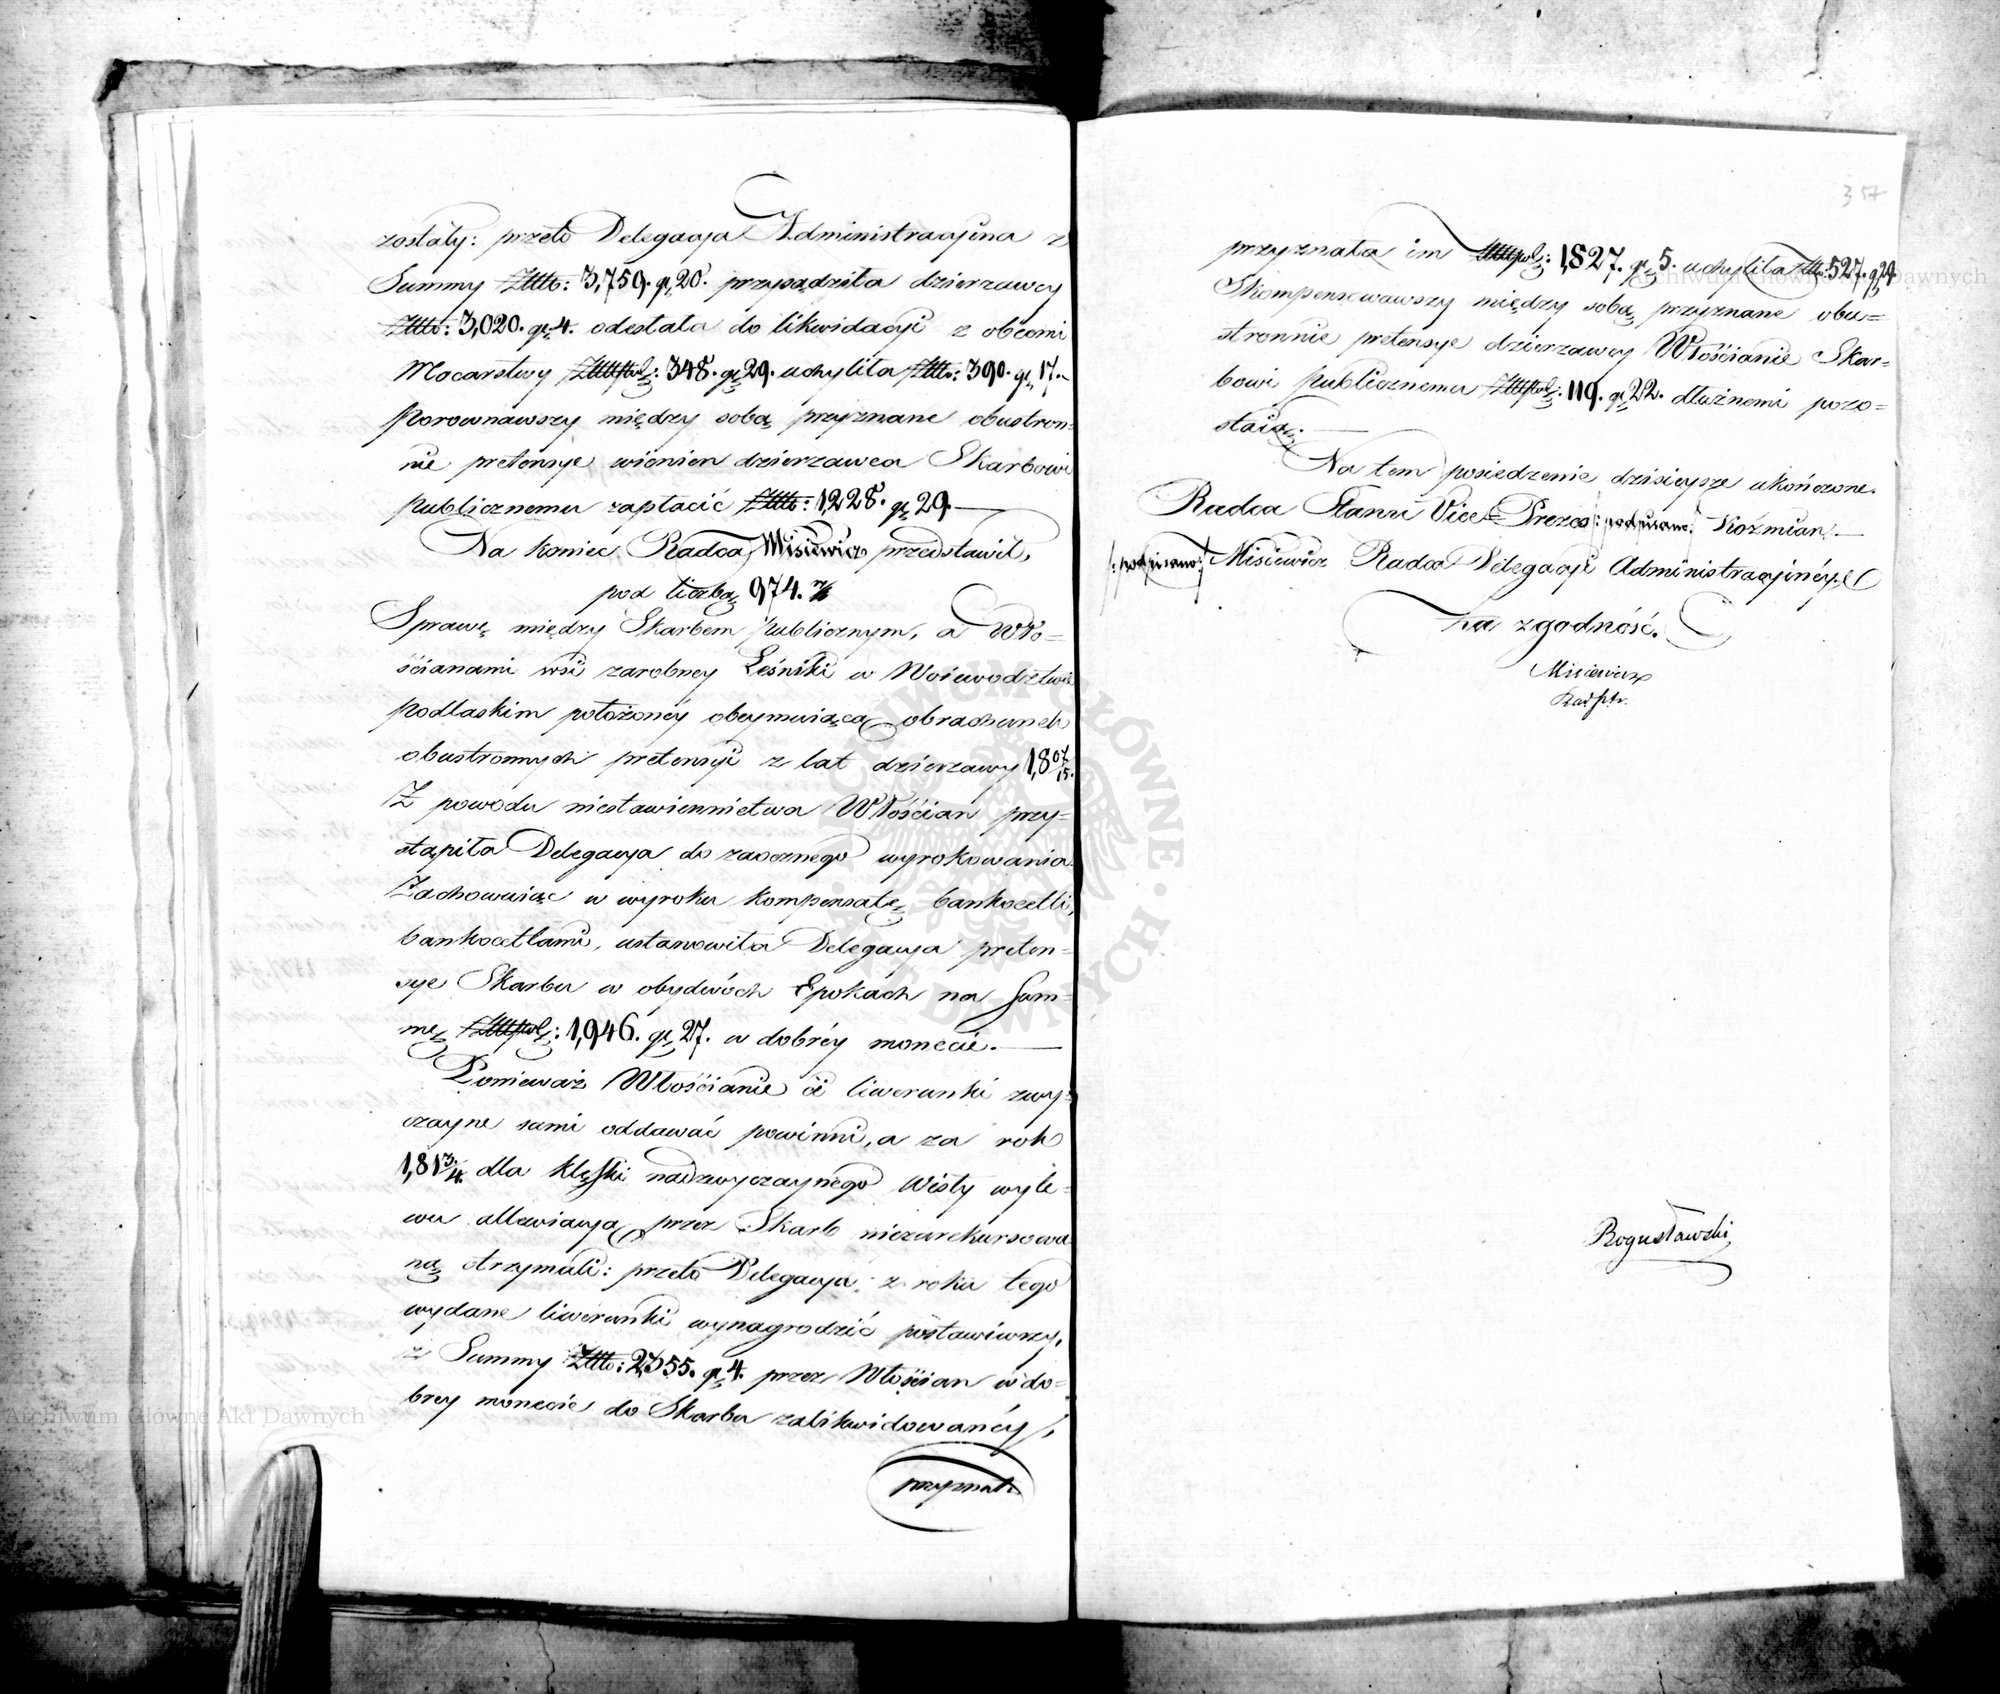 zostały: przeto Delegacya Administracyina z
Summy Złtto: 3,759. gr 20. przysądziła dzierzawcy
Złtto: 3,020. gr 4. odesłała do likwidacyi z obcemi
Mocarstwy Złttpol: 348. gr 29. uchyliła Złtto: 390. gr 17.
Porownawszy między sobą przyznane obustron=
nie pretensye winien dzierzawca Skarbowi
publicznemu zapłacić Złtto: 1,228. gr 29.—
Na koniec Radca Misiewicz przedstawił,
pod liczbą 974.
Sprawę między Skarbem publicznym, a Wło=
ścianami wsi zarobney Leśniki w Woiewodztwie
Podlaskim położonéy obeymuiącą obrachunek
obustronnych pretensyi z lat dzierzawy 1,807/15.
Z powodu niestawiennictwa Włościan przy=
stąpiła Delegacya do zaocznego wyrokowania
Zachowuiąc w wyroku kompensatę bankocetli,
bankocetlami, ustanowiła Delegacya preten=
sye Skarbu w obydwóch Epokach na Sum=
mę Złttpol: 1,946. gr 27. w dobréy monecie.—
Ponieważ Włościanie ci liwerunki zwy=
czayne sami oddawać powinni, a za rok
1,813/4. dla klęski nadzwyczaynego Wisły wyle=
wu allewiacyą przez Skarb niezarekursowa
ną otrzymali: przeto Delegacya z roku tego
wydane liwerunki wynagrodzić postawiwszy,
z Summy Złtto: 2,355. gr 4. przez Włościan w do=
brey monecie do Skarbu zalikwidowanéy,
przyznała
357
przyznała im Złttpol: 1,827. gr 5. uchyliła Złtto: 527. gr 29
Skompensowawszy między sobą przyznane obu=
stronnie pretensye dzierzawcy Włościanie Skar=
bowi publicznemu Złttpol: 119. gr 22. dłużnemi pozo=
staią.—
Na tem posiedzenie dzisieysze ukończone.
Radca Stanu Vice-Prezes /:podpisano:/ Koźmian.—
/:podpisano:/ Misiewicz Radca Delegacyi Administracyinéy.
Za zgodność.
Misiewicz
Bogusławski
Archiwum Główne Akt Dawnych
Archiwum Główne Akt Dawnych
ARCHIWUM GŁÓWNE AKT DAWNYCH